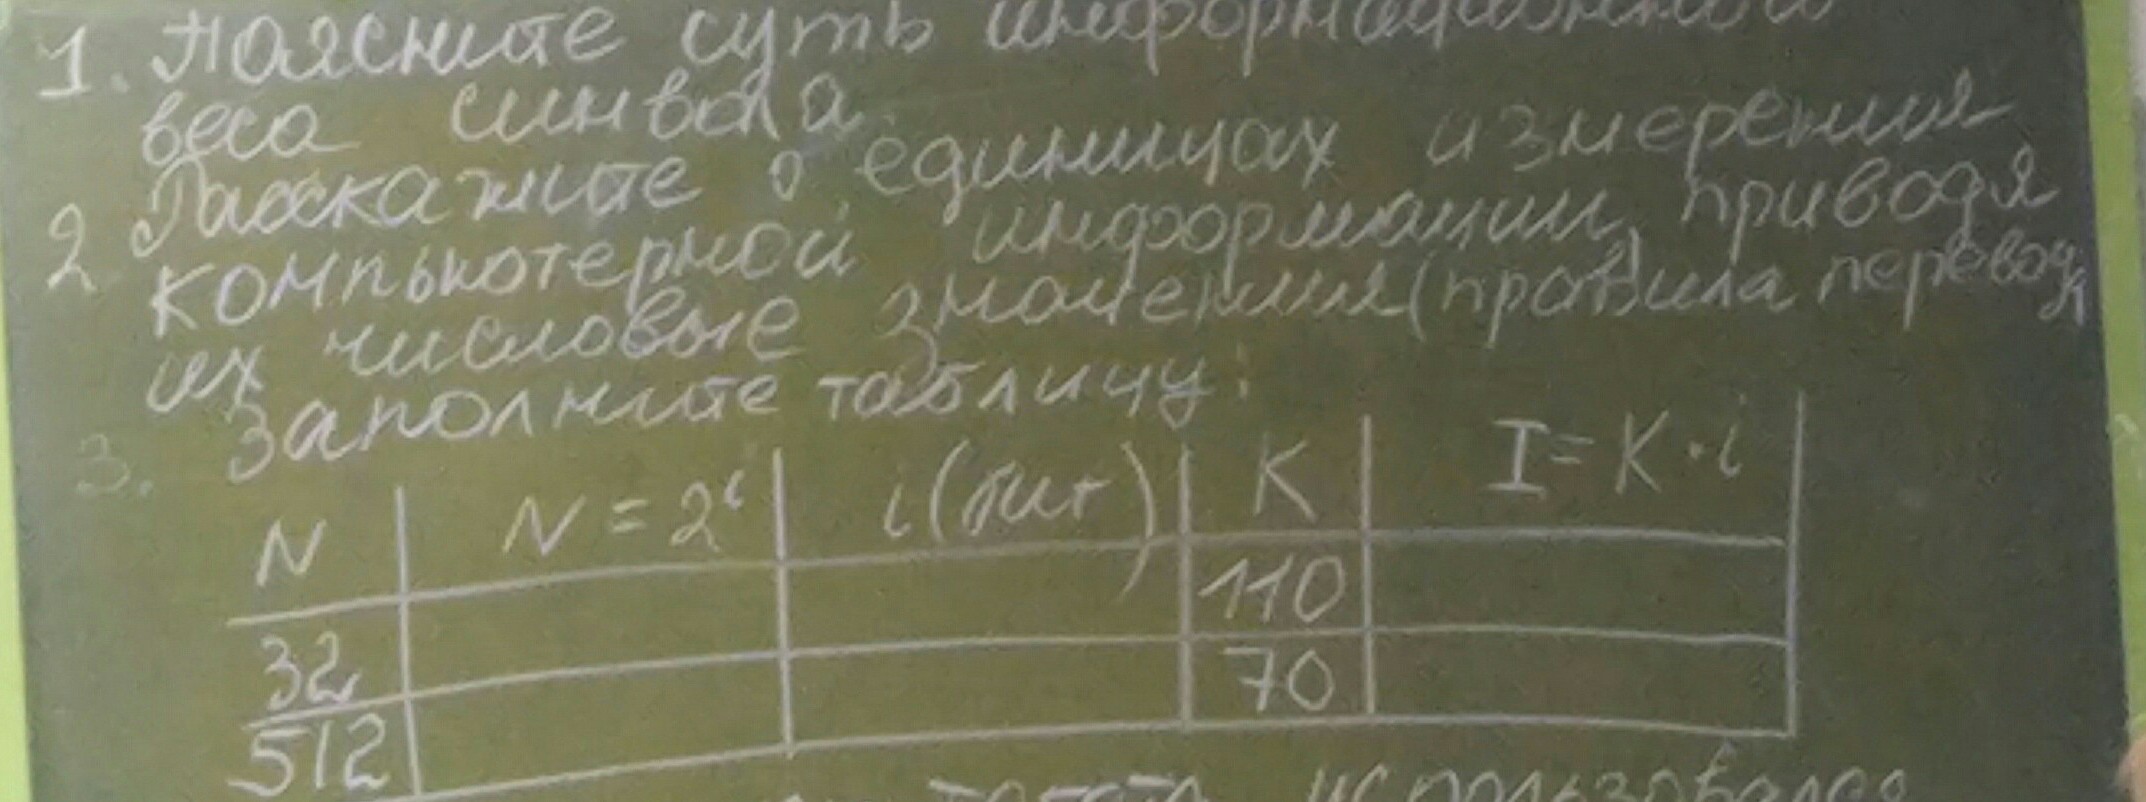 1. Поясните суть информационной
веса символа.
2. Расскажите о единицах измерения
компьютерной информации, приводя
их числовые значения (правила перевода
3. Заполните таблицу:
N N = 2ⁱ i (бит) K I = K · i
32 110
512 70
использовался